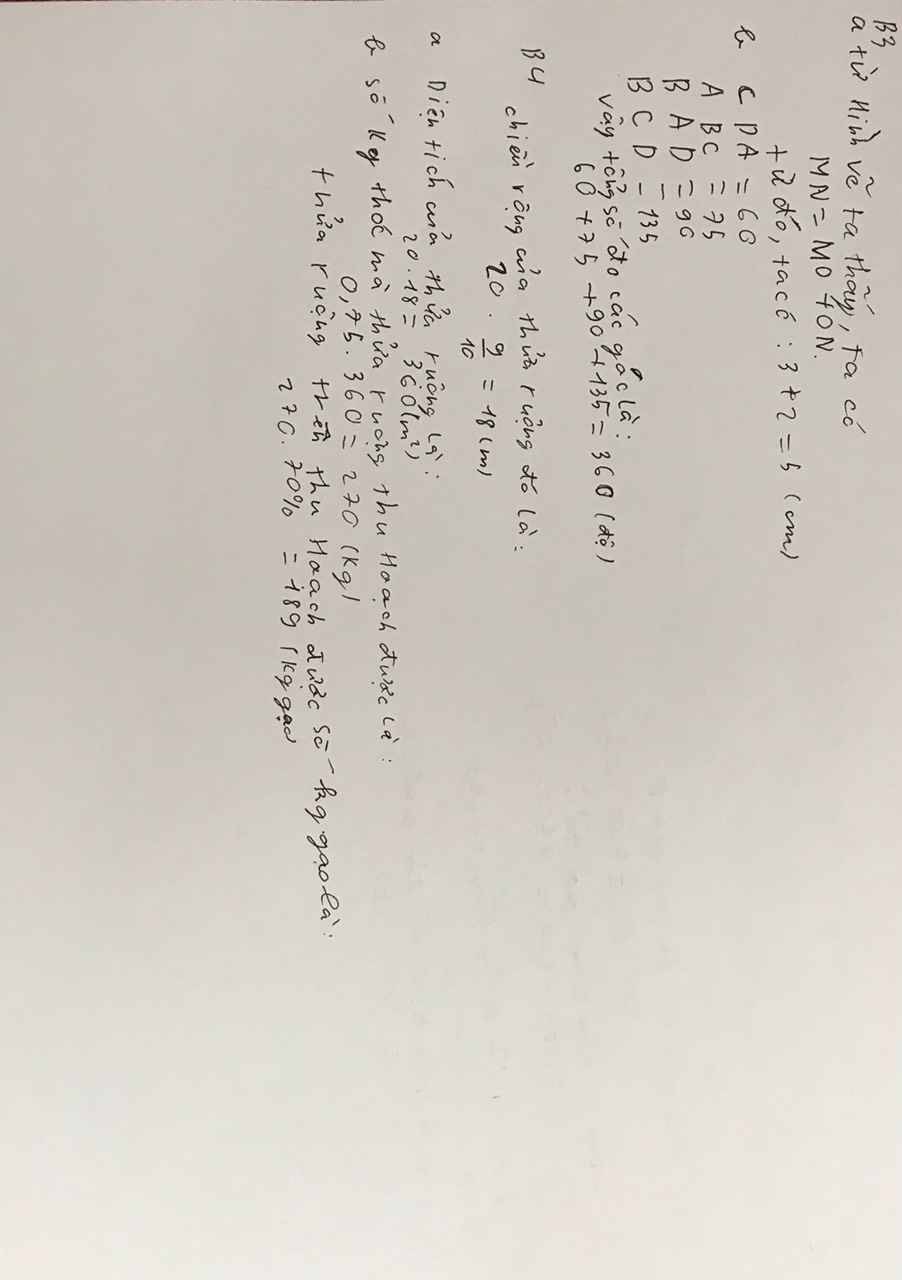 B3
a từ Hình vẽ ta thấy, ta có
MN = MO + ON.
từ đó, ta có : 3 + 2 = 5 (cm)
b C D A = 60
A B C = 75
B A D = 90
B C D = 135
vậy tổng số đo các góc là :
60 + 75 + 90 + 135 = 360 (độ)
B4 chiều rộng của thửa ruộng đó là :
20 . 9/10 = 18 (m)
a Diện tích của thửa ruộng là :
20 . 18 = 360 (m²)
b số kg thóc mà thửa ruộng thu Hoạch được là :
0,75 . 360 = 270 (kg)
thửa ruộng trên thu Hoạch được số kg gạo là :
270 . 70% = 189 (kg gạo